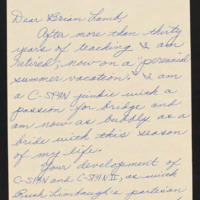 Dear Brian Lamb,
After more than thirty
years of teaching I am
retired; now on a "perennial
summer vacation". I am
a C-SPAN junkie with a
passion for bridge and
am now as bubbly as a
bride with this season
of my life.
Your development of
C-SPAN and C-SPAN II, as with
Rush Limbaugh's